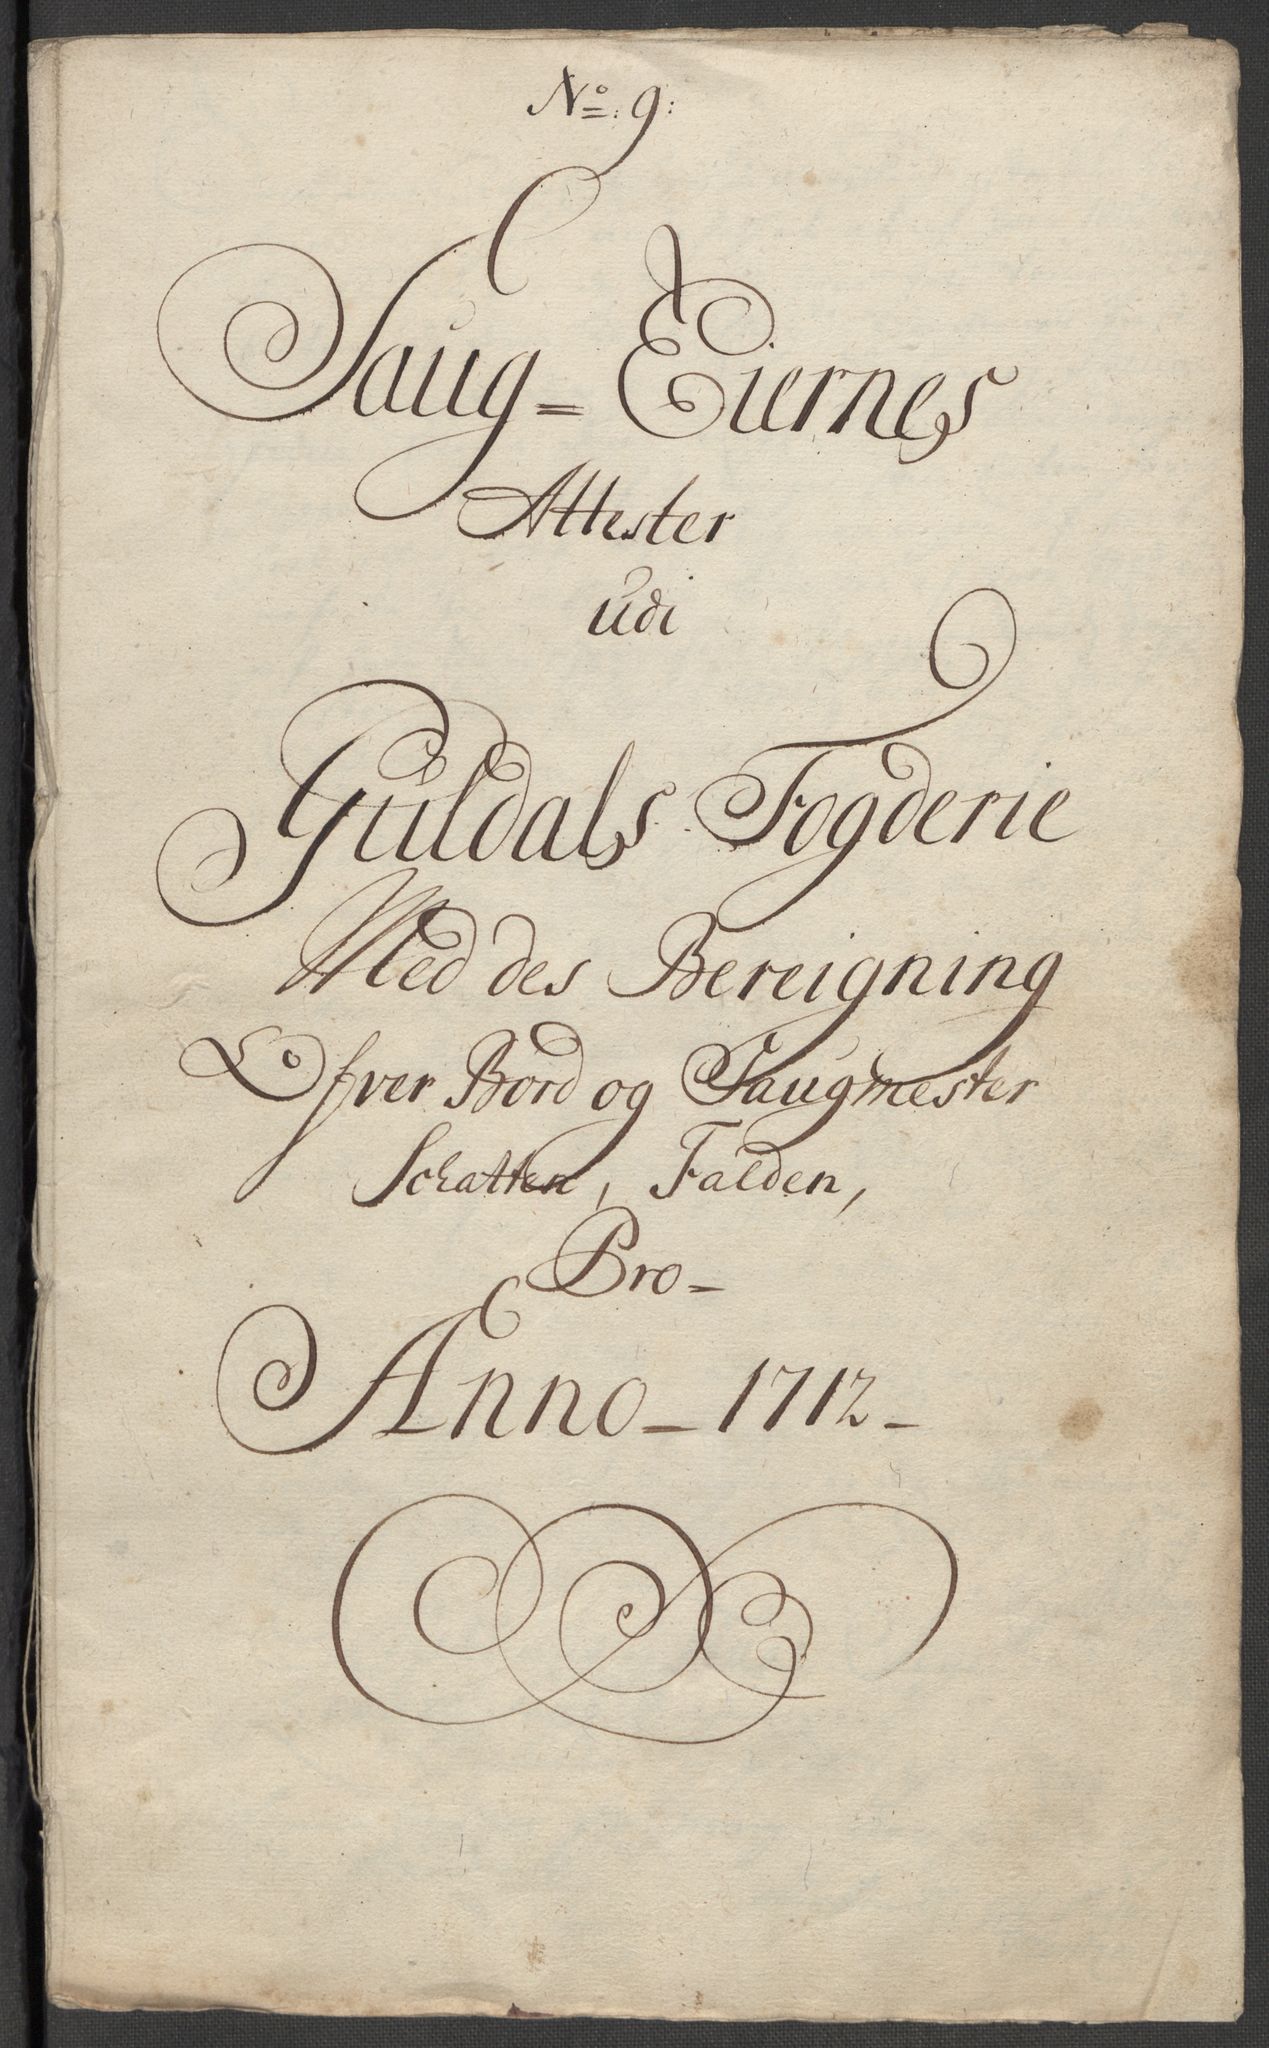 No: 9:
Saug= Eiernes
Attester
udi
Guldals Fogderie
Med des Bereigning
Ofver Bord og Saugmester
Schatten, Falden,
Pro=
Anno - 1712 -